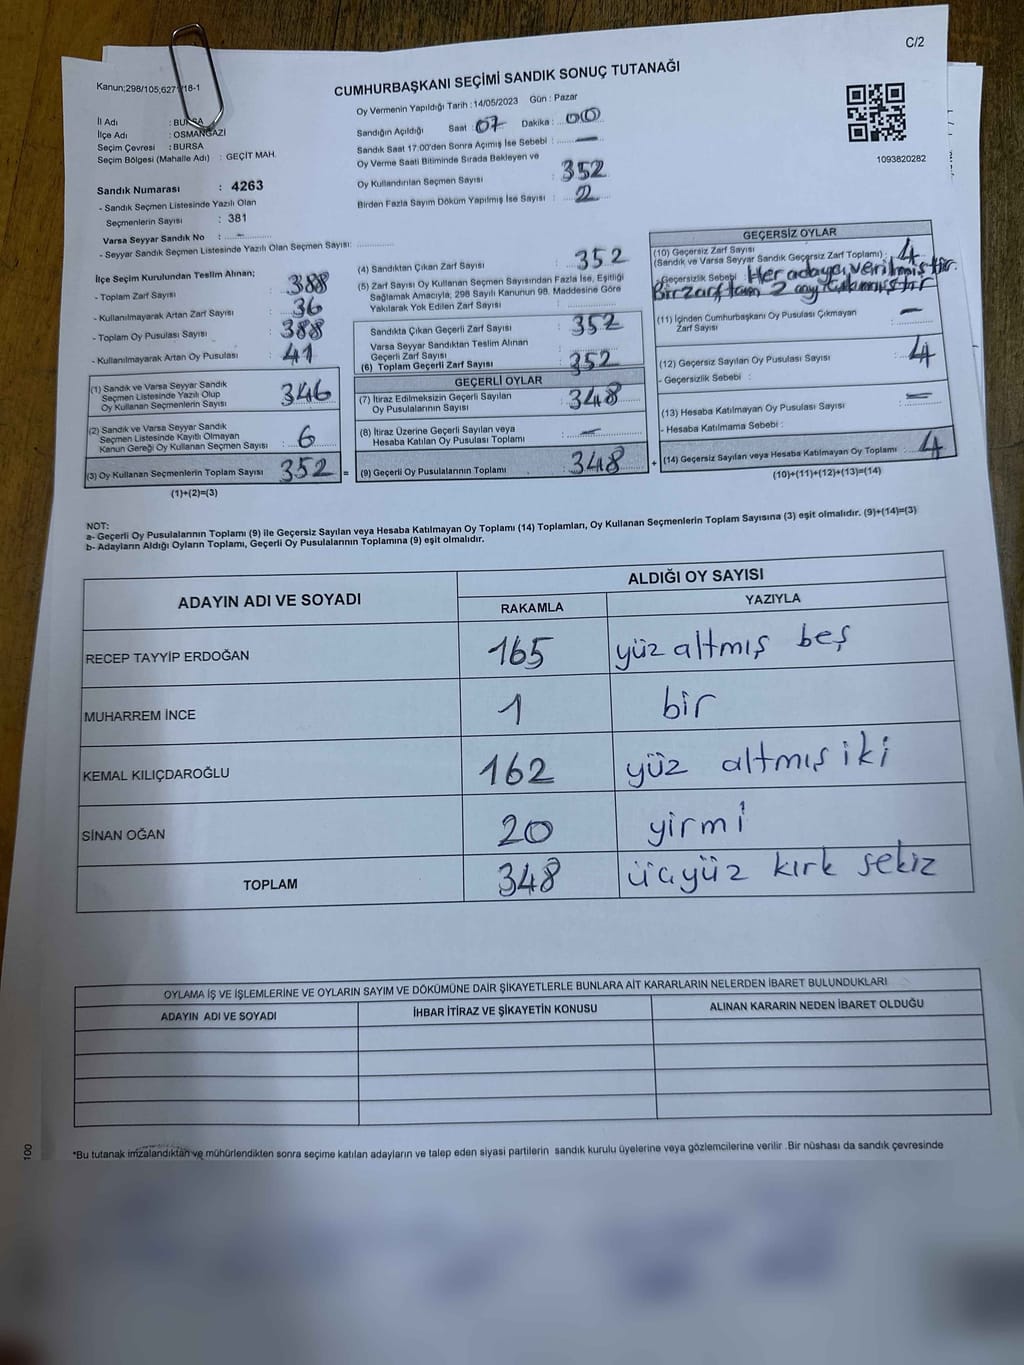 C/2
Kanun;298/105;627 18-1
CUMHURBAŞKANI SEÇİMİ SANDIK SONUÇ TUTANAĞI
Oy Vermenin Yapıldığı Tarih :14/05/2023 Gün : Pazar
İl Adı : BURSA
İlçe Adı : OSMANGAZİ
Seçim Çevresi : BURSA
Seçim Bölgesi (Mahalle Adı) : GEÇİT MAH.
Sandığın Açıldığı Saat : 07 Dakika : 00
Sandık Saat 17:00'den Sonra Açımış İse Sebebi : —
Oy Verme Saati Bitiminde Sırada Bekleyen ve
Oy Kullandırılan Seçmen Sayısı : 352
Birden Fazla Sayım Döküm Yapılmış İse Sayısı : 2
1093820282
Sandık Numarası : 4263
- Sandık Seçmen Listesinde Yazılı Olan
Seçmenlerin Sayısı : 381
Varsa Seyyar Sandık No : —
- Seyyar Sandık Seçmen Listesinde Yazılı Olan Seçmen Sayısı:
İlçe Seçim Kurulundan Teslim Alınan;
- Toplam Zarf Sayısı : 388
- Kullanılmayarak Artan Zarf Sayısı : 36
- Toplam Oy Pusulası Sayısı : 388
- Kullanılmayarak Artan Oy Pusulası : 41
(1) Sandık ve Varsa Seyyar Sandık
Seçmen Listesinde Yazılı Olup
Oy Kullanan Seçmenlerin Sayısı : 346
(2) Sandık ve Varsa Seyyar Sandık
Seçmen Listesinde Kayıtlı Olmayan
Kanun Gereği Oy Kullanan Seçmen Sayısı : 6
(3) Oy Kullanan Seçmenlerin Toplam Sayısı : 352 =
(1)+(2)=(3)
(4) Sandıktan Çıkan Zarf Sayısı : 352
(5) Zarf Sayısı Oy Kullanan Seçmen Sayısından Fazla İse, Eşitliği
Sağlamak Amacıyla; 298 Sayılı Kanunun 98. Maddesine Göre
Yakılarak Yok Edilen Zarf Sayısı :
Sandıkta Çıkan Geçerli Zarf Sayısı : 352
Varsa Seyyar Sandıktan Teslim Alınan
Geçerli Zarf Sayısı :
(6) Toplam Geçerli Zarf Sayısı : 352
GEÇERLİ OYLAR
(7) İtiraz Edilmeksizin Geçerli Sayılan
Oy Pusulalarının Sayısı : 348
(8) İtiraz Üzerine Geçerli Sayılan veya
Hesaba Katılan Oy Pusulası Toplamı : —
(9) Geçerli Oy Pusulalarının Toplamı : 348 +
GEÇERSİZ OYLAR
(10) Geçersiz Zarf Sayısı
(Sandık ve Varsa Seyyar Sandık Geçersiz Zarf Toplamı) : 4
-Geçersizlik Sebebi : Her adaya verilmiştir.
Bir zarftan 2 oy çıkmıştır
(11) İçinden Cumhurbaşkanı Oy Pusulası Çıkmayan
Zarf Sayısı : —
(12) Geçersiz Sayılan Oy Pusulası Sayısı : 4
- Geçersizlik Sebebi :
(13) Hesaba Katılmayan Oy Pusulası Sayısı : —
- Hesaba Katılmama Sebebi :
(14) Geçersiz Sayılan veya Hesaba Katılmayan Oy Toplamı : 4
(10)+(11)+(12)+(13)=(14)
NOT:
a- Geçerli Oy Pusulalarının Toplamı (9) ile Geçersiz Sayılan veya Hesaba Katılmayan Oy Toplamı (14) Toplamları, Oy Kullanan Seçmenlerin Toplam Sayısına (3) eşit olmalıdır. (9)+(14)=(3)
b- Adayların Aldığı Oyların Toplamı, Geçerli Oy Pusulalarının Toplamına (9) eşit olmalıdır.
ADAYIN ADI VE SOYADI
ALDIĞI OY SAYISI
RAKAMLA YAZIYLA
RECEP TAYYİP ERDOĞAN 165 yüz altmış beş
MUHARREM İNCE 1 bir
KEMAL KILIÇDAROĞLU 162 yüz altmış iki
SİNAN OĞAN 20 yirmi
TOPLAM 348 üçyüz kırk sekiz
OYLAMA İŞ VE İŞLEMLERİNE VE OYLARIN SAYIM VE DÖKÜMÜNE DAİR ŞİKAYETLERLE BUNLARA AİT KARARLARIN NELERDEN İBARET BULUNDUKLARI
ADAYIN ADI VE SOYADI İHBAR İTİRAZ VE ŞİKAYETİN KONUSU ALINAN KARARIN NEDEN İBARET OLDUĞU
100
*Bu tutanak imzalandıktan ve mühürlendikten sonra seçime katılan adayların ve talep eden siyasi partilerin sandık kurulu üyelerine veya gözlemcilerine verilir .Bir nüshası da sandık çevresinde